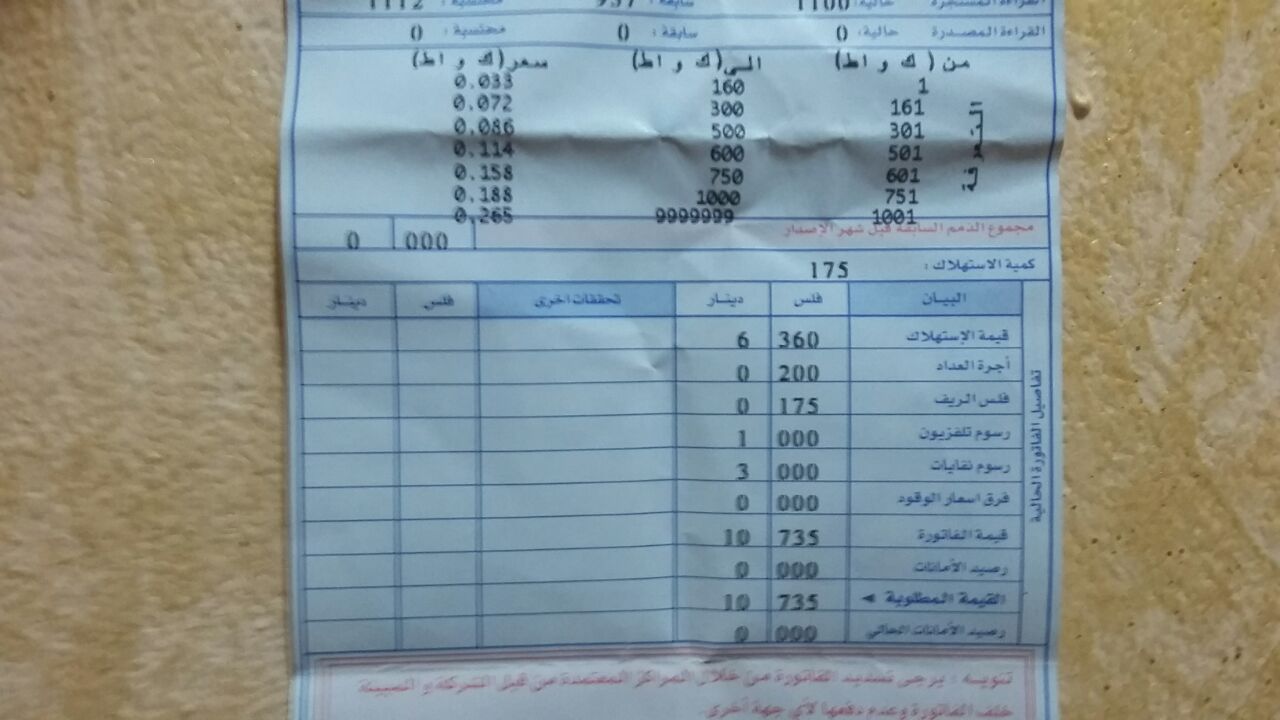 القراءة المستجرة حالية: 1100 سابقة: 937 محتسبة: 1112
القراءة المصدرة حالية: 0 سابقة: 0 محتسبة: 0
من ( ك و اط) الى( ك و اط) سعر( ك و اط)
التعرفة
1 160 0.033
161 300 0.072
301 500 0.086
501 600 0.114
601 750 0.158
751 1000 0.188
1001 9999999 0.265
مجموع الذمم السابقة قبل شهر الإصدار 000 0
كمية الاستهلاك: 175
تفاصيل الفاتورة الحالية
البيان فلس دينار تحققات اخرى فلس دينار
قيمة الإستهلاك 360 6
أجرة العداد 200 0
فلس الريف 175 0
رسوم تلفزيون 000 1
رسوم نفايات 000 3
فرق اسعار الوقود 000 0
قيمة الفاتورة 735 10
رصيد الأمانات 000 0
القيمة المطلوبة ◄ 735 10
رصيد الأمانات الحالي 000 0
تنويه : يرجى تسديد الفاتورة من خلال المراكز المعتمدة من قبل الشركة و المبينة
خلف الفاتورة وعدم دفعها لأي جهة أخرى.